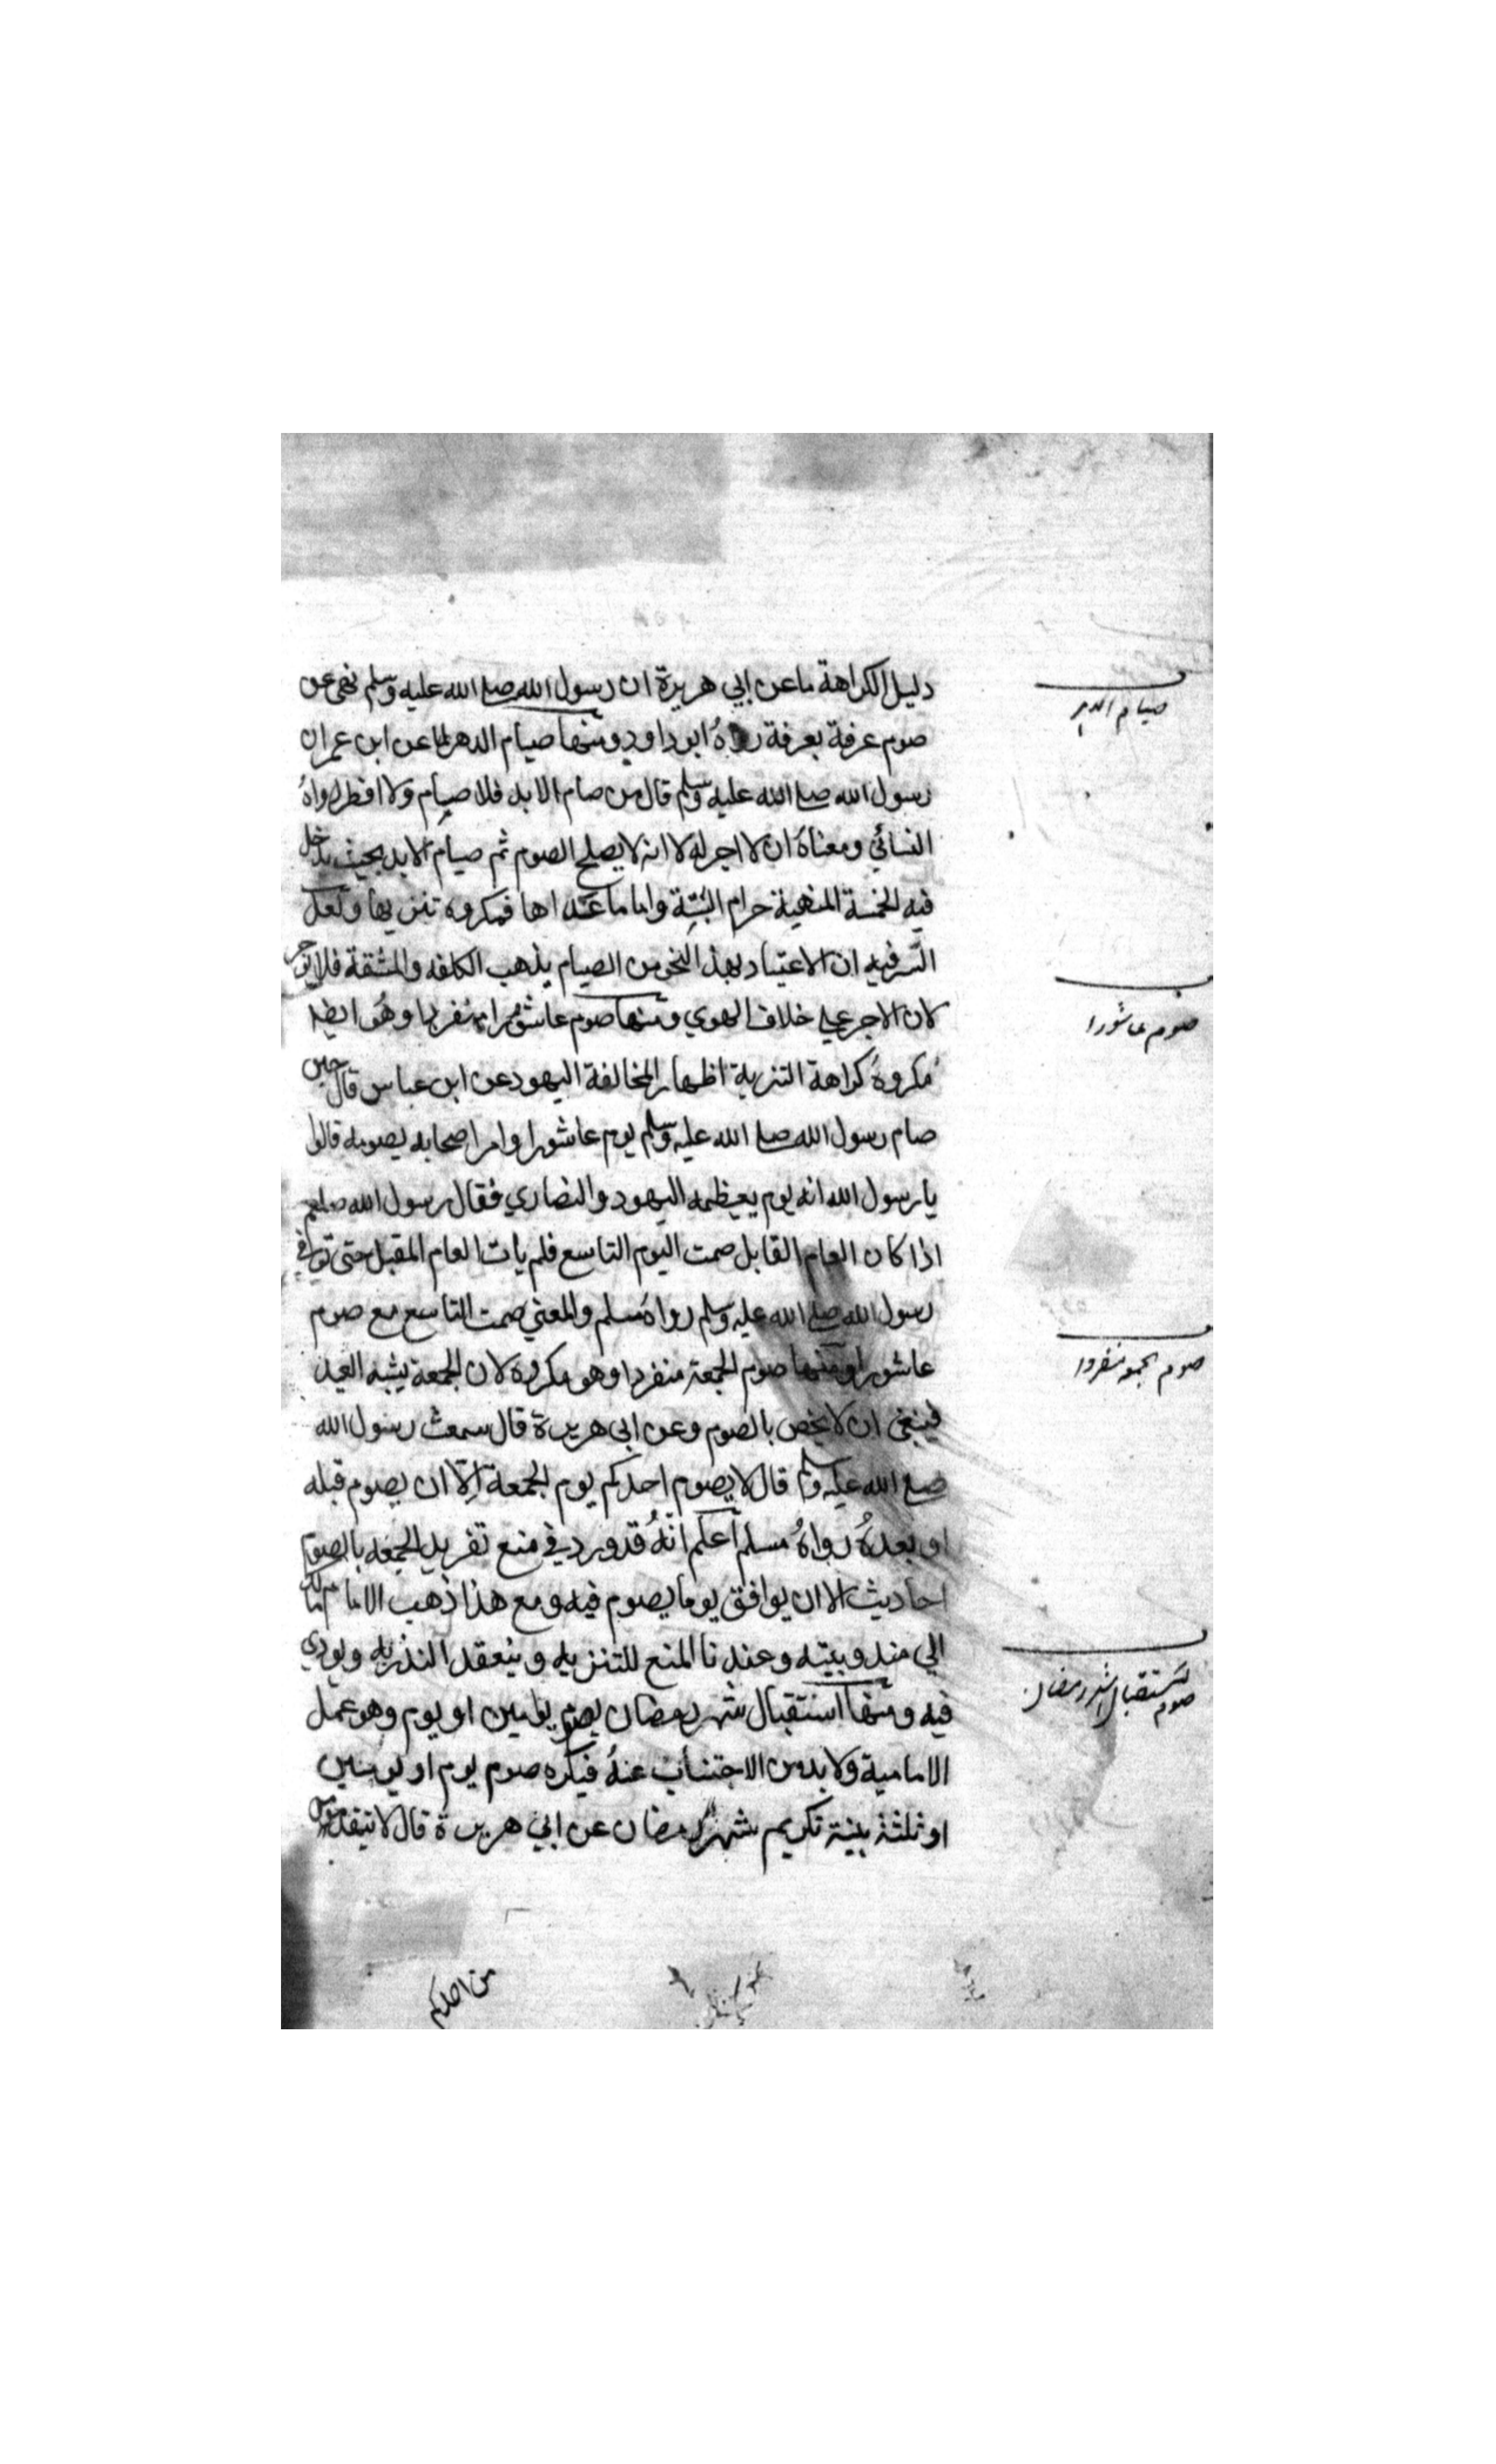 دليل الكراهة ما عن ابي هريرة ان رسول الله صلے الله عليه وسلم نهى عن
صيام الدهر
صوم عرفة بعرفة رواهُ ابو داود ومنها صيام الدهر لما عن ابن عمر ان
رسول الله صلے الله عليه وسلم قال من صام الابد فلا صيام ولا افطر رواهُ
النسائي ومعناهُ ان لا اجر له لا انه لا يصلح الصوم ثم صيام الابد بحيث يدخل
فيه الخمسة المنهية حرام البتة واما ما عداها فمكروه تنزيها ولعل
السر فيه ان الاعتياد بهذا النحو من الصيام يذهب الكلفه والمشقة فلا يوجر
لان الاجر علي خلاف الهوي ومنها صوم عاشورا منفردا وهُو ايضا
صوم عاشورا
مكروهُ كراهة التنزية اظهار المخالفة اليهود عن ابن عباس قال حين
صام رسول الله صلے الله عليه وسلم يوم عاشورا وامر اصحابه بصومه قالوا
يا رسول الله انه يوم يعظمه اليهود والنصاري فقال رسول الله صلعم
اذا كان العام القابل صمت اليوم التاسع فلم يات العام المقبل حتى توفي
رسول الله صلے الله عليه وسلم رواه مسلم والمعني صمت التاسع مع صوم
عاشورا ومنها صوم الجمعة منفردا وهو مكروه لان الجمعة يشبه العيد
صوم جمعه منفردا
فينبغي ان لا يخص بالصوم وعن ابي هريرة قال سمعت رسول الله
صلے الله عليه وسلم قال لا يصوم احدكم يوم الجمعة الّا ان يصوم قبله
او بعدهُ رواهُ مسلم اعلم انّهُ قد ورد في منع تفريد الجمعه بالصوم
احاديث الا ان يوافق يوما يصوم فيه ومع هذا ذهب الامام مالك
الي مندوبيته وعندنا المنع للتنزيه وينعقد النذر به ويودي
فيه ومنها استقبال شهر رمضان بصوم يومين او يوم وهو عمل
صوم استقبال شهر رمضان
الامامية ولا بد من الاجتناب عنهُ فيكره صوم يوم او يومين
او ثلثة بنية تكريم شهر رمضان عن ابي هريرة قال لا يتقدمن
من احدكم